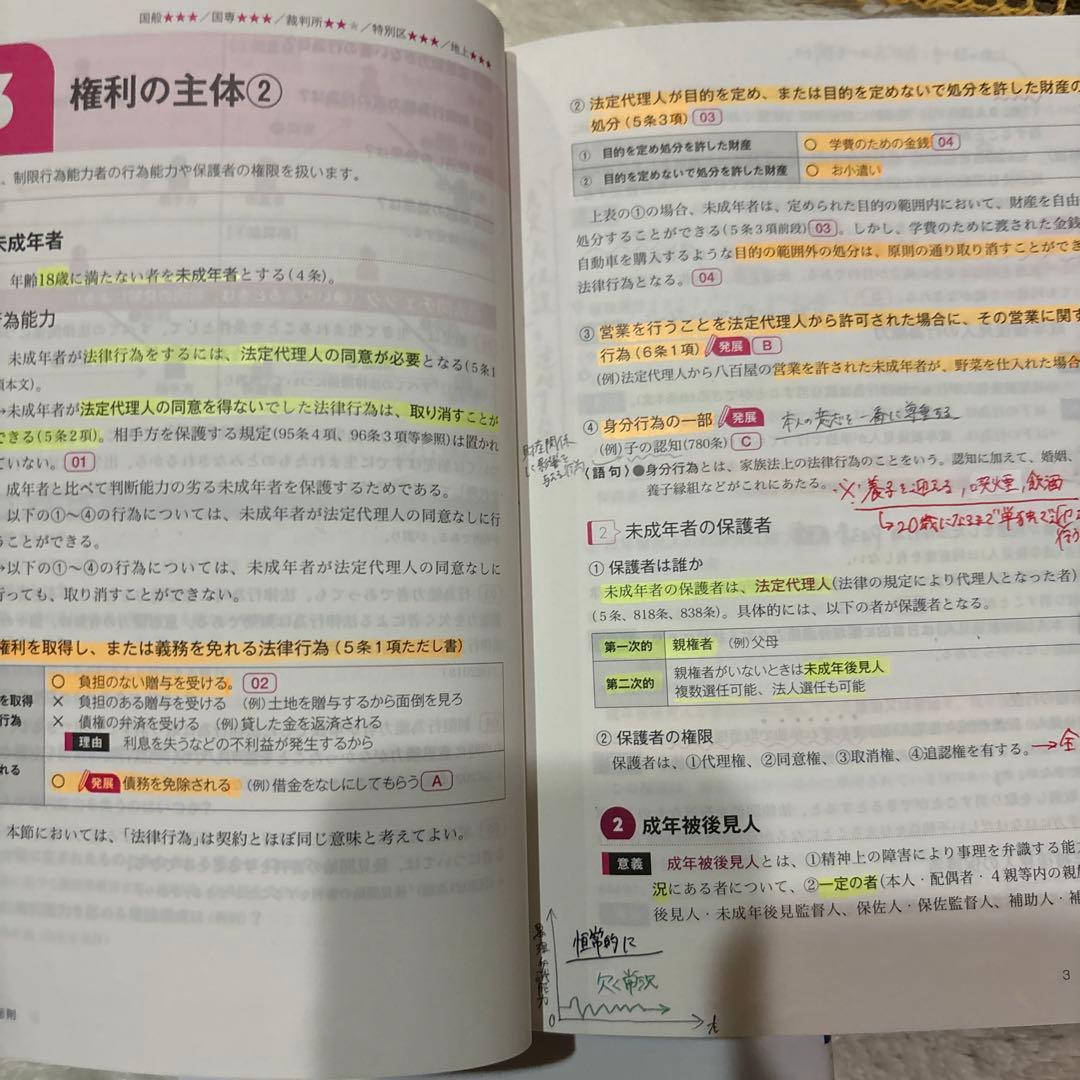 国般★★★/国専★★★/裁判所★★★/特別区★★★/地上★★★
3
権利の主体②
、制限行為能力者の行為能力や保護者の権限を扱います。
未成年者
年齢18歳に満たない者を未成年者とする(4条)。
為能力
未成年者が法律行為をするには、法定代理人の同意が必要となる(5条1
項本文)。
→未成年者が法定代理人の同意を得ないでした法律行為は、取り消すことが
できる(5条2項)。相手方を保護する規定(95条4項、96条3項等参照)は置かれ
ていない。01
成年者と比べて判断能力の劣る未成年者を保護するためである。
以下の①～④の行為については、未成年者が法定代理人の同意なしに行
うことができる。
→以下の①～④の行為については、未成年者が法定代理人の同意なしに
行っても、取り消すことができない。
権利を取得し、または義務を免れる法律行為(5条1項ただし書)
を取得
行為
○ 負担のない贈与を受ける。02
× 負担のある贈与を受ける (例)土地を贈与するから面倒を見ろ
× 債権の弁済を受ける (例)貸した金を返済される
理由 利息を失うなどの不利益が発生するから
れる
○ 発展 債務を免除される (例)借金をなしにしてもらう A
本節においては、「法律行為」は契約とほぼ同じ意味と考えてよい。
総則
② 法定代理人が目的を定め、または目的を定めないで処分を許した財産の
処分(5条3項) 03
① 目的を定め処分を許した財産 ○ 学費のための金銭 04
② 目的を定めないで処分を許した財産 ○ お小遣い
上表の①の場合、未成年者は、定められた目的の範囲内において、財産を自由
処分することができる(5条3項前段) 03。しかし、学費のために渡された金銭
自動車を購入するような目的の範囲外の処分は、原則の通り取り消すことができ
法律行為となる。04
③ 営業を行うことを法定代理人から許可された場合に、その営業に関す
行為(6条1項) 発展 B
(例)法定代理人から八百屋の営業を許された未成年者が、野菜を仕入れた場合
④ 身分行為の一部 発展 本人の意志を一番に尊重する
(例)子の認知(780条) C
財産関係
に影響を
与える行為
〈語句〉●身分行為とは、家族法上の法律行為のことをいう。認知に加えて、婚姻、
養子縁組などがこれにあたる。
※養子を迎える,喫煙,飲酒
↳20歳になるまで
行う
2 未成年者の保護者
① 保護者は誰か
未成年者の保護者は、法定代理人(法律の規定により代理人となった者)
(5条、818条、838条)。具体的には、以下の者が保護者となる。
第一次的 親権者 (例)父母
第二次的 親権者がいないときは未成年後見人
複数選任可能、法人選任も可能
② 保護者の権限
保護者は、①代理権、②同意権、③取消権、④追認権を有する。→金
2 成年被後見人
意義 成年被後見人とは、①精神上の障害により事理を弁識する能力
況にある者について、②一定の者(本人・配偶者・4親等内の親族
後見人・未成年後見監督人、保佐人・保佐監督人、補助人・補
事理弁識能力
恒常的に
欠く常況
0
t
3